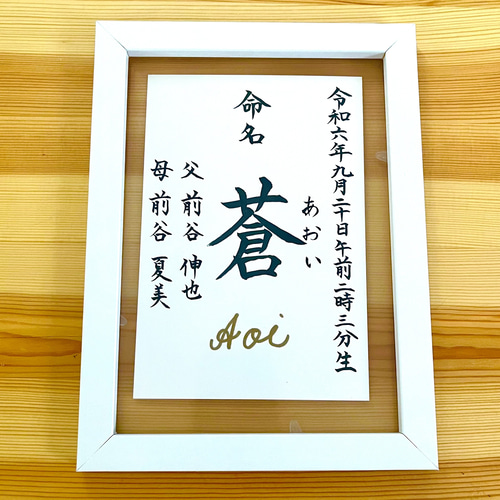 令和六年九月二十日午前二時三分生
命名
あおい
蒼
Aoi
父 前谷 伸也
母 前谷 夏美